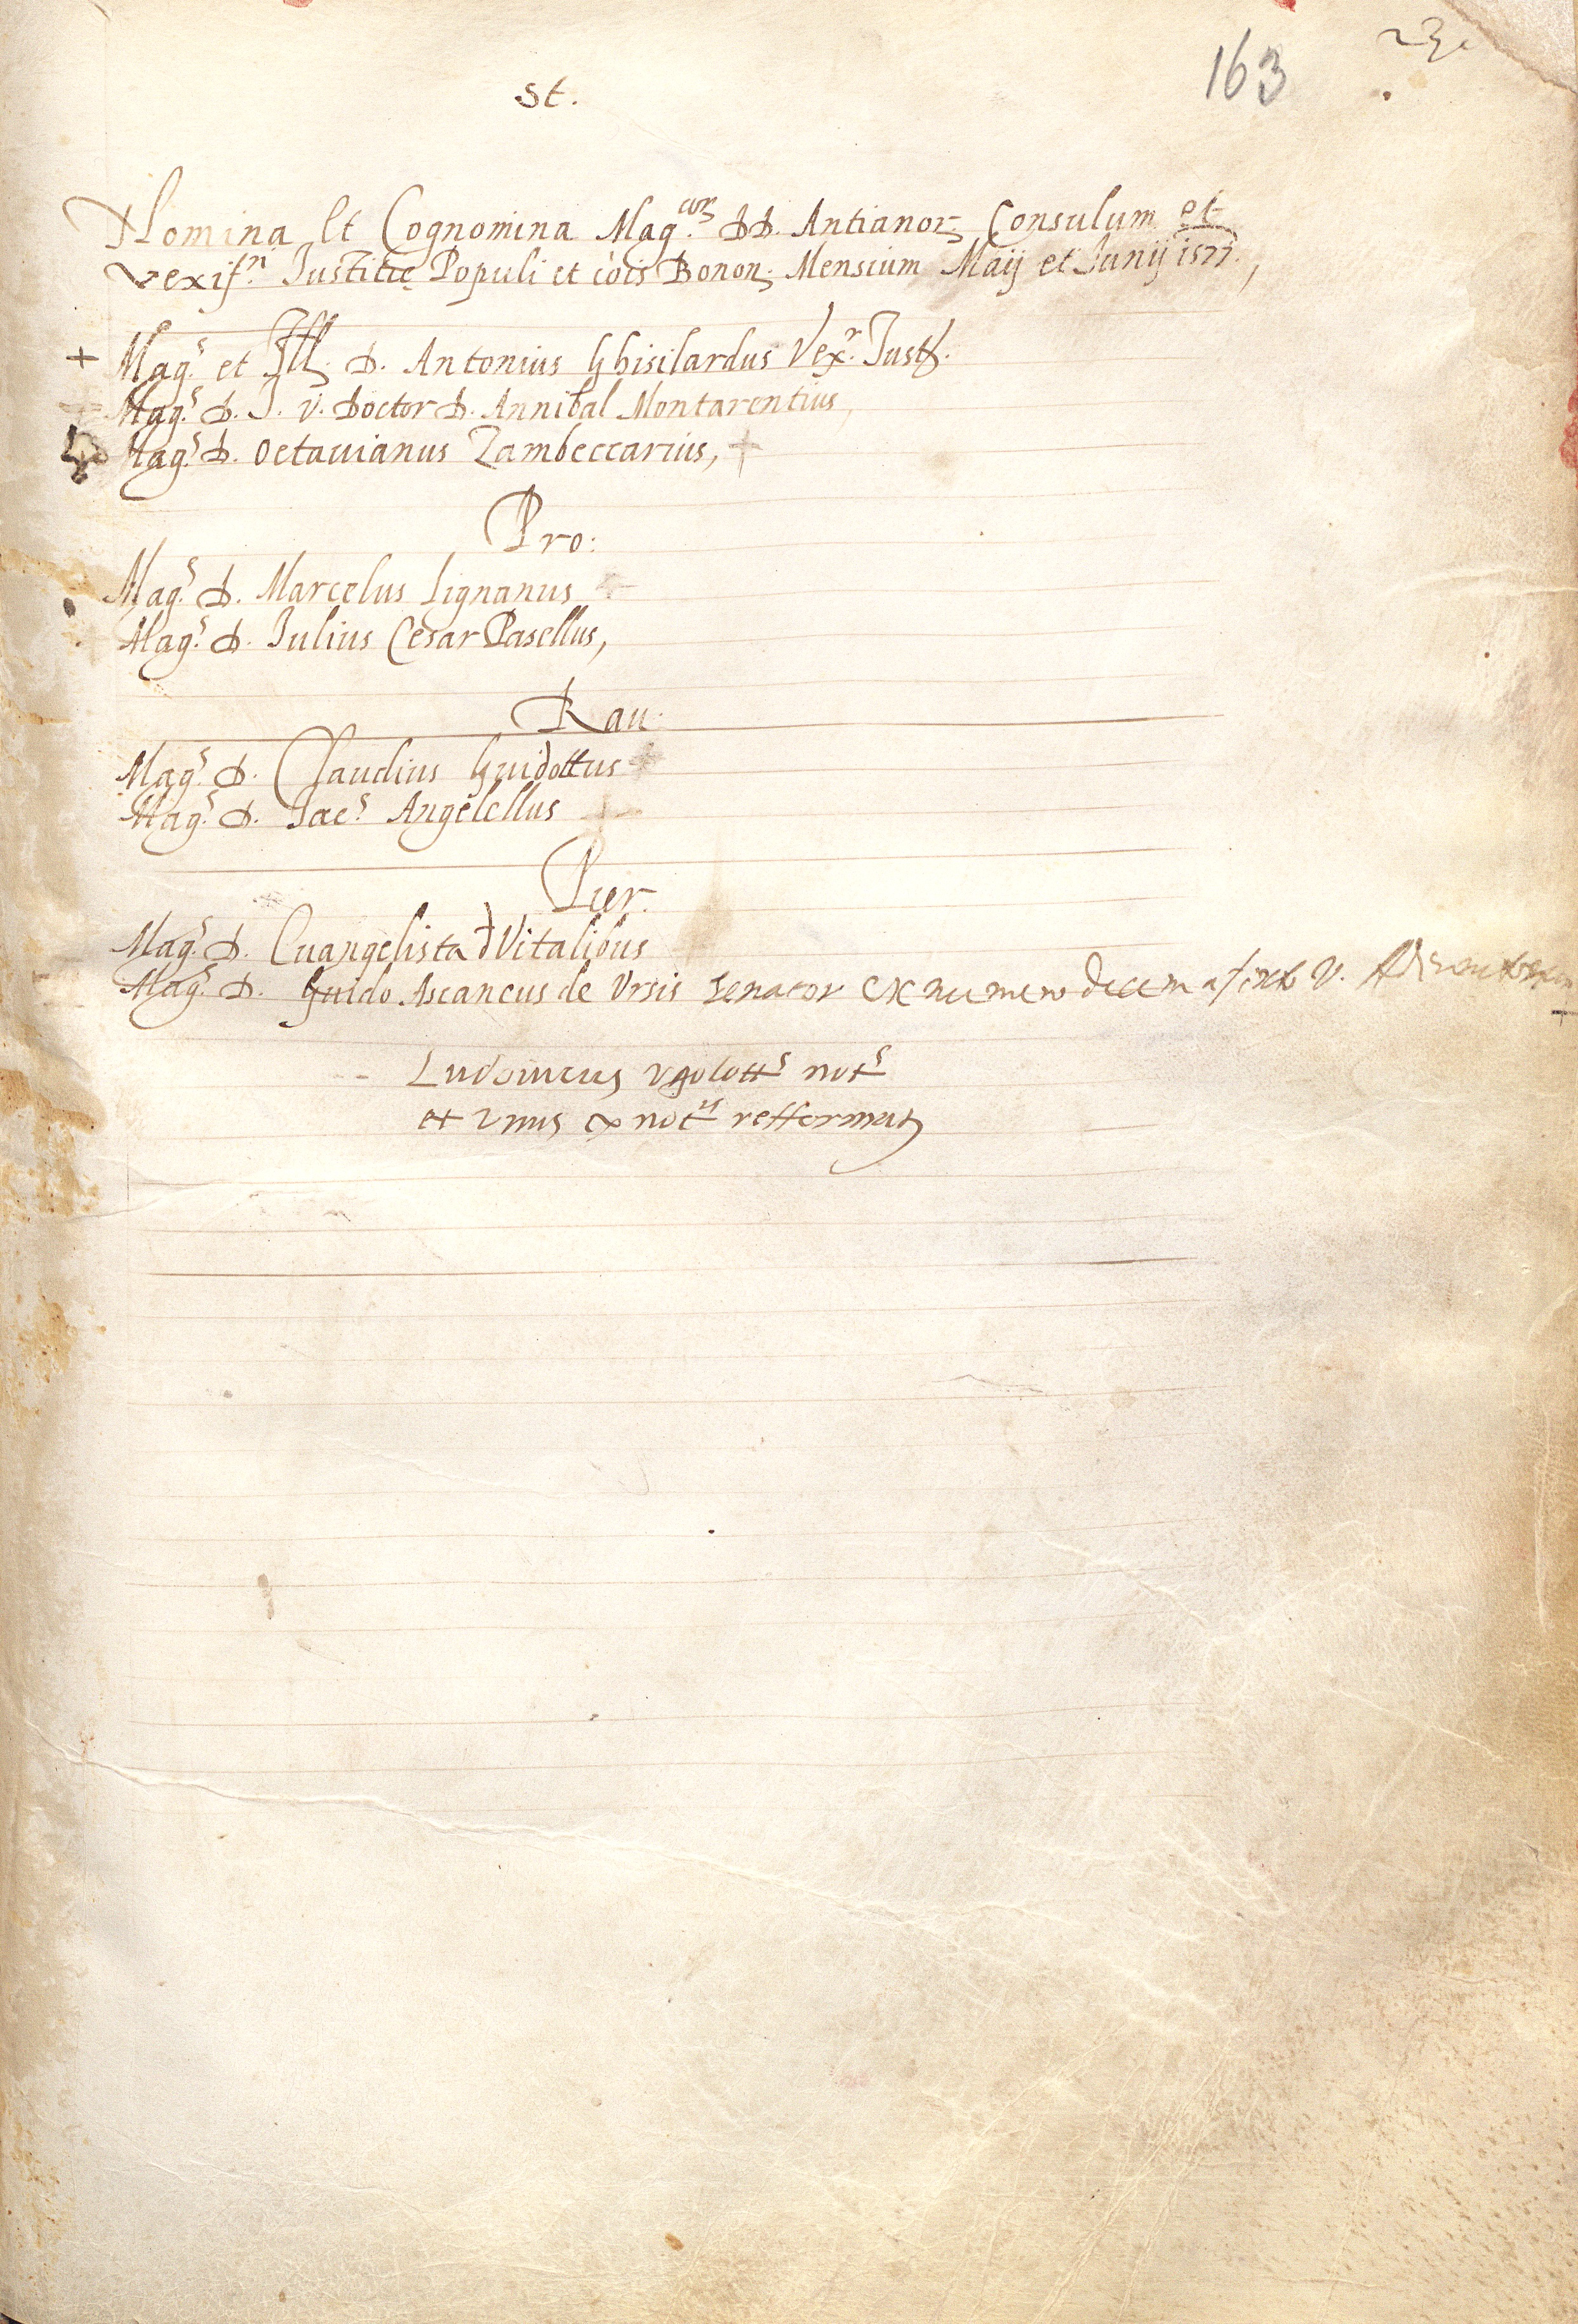 163
St.
Nomina Et Cognomina Mag.cor DD. Antianor. Consulum et
Vexif.ri Justitię Populi et cois Bonon. Mensium Maij et Junij 1577.,
+ Mag.s et Ill. D. Antonius Ghisilardus Vex.r Just.
Mag.s D. J. V. Doctor D. Annibal Montarentius,
Mag.s D. Octauianus Zambeccarius, +
Pro:
Mag.s D. Marcelus Lignanus +
Mag.s D. Julius Cesar Pasellus,
Rau.
Mag.s D. Claudius Guidottus +
Mag.s D. Jac.s Angelellus +
Pier.
Mag.s D. Euangelista d Vitalibus
Mag.s D. Guido Ascaneus de Ursis senator ex numero decem
Ludouicus Ugolott.s not.s
et unus ex not.is refformat